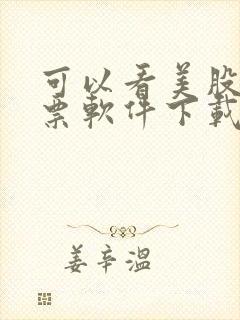 可以看美股
票軟件下載
姜辛溫